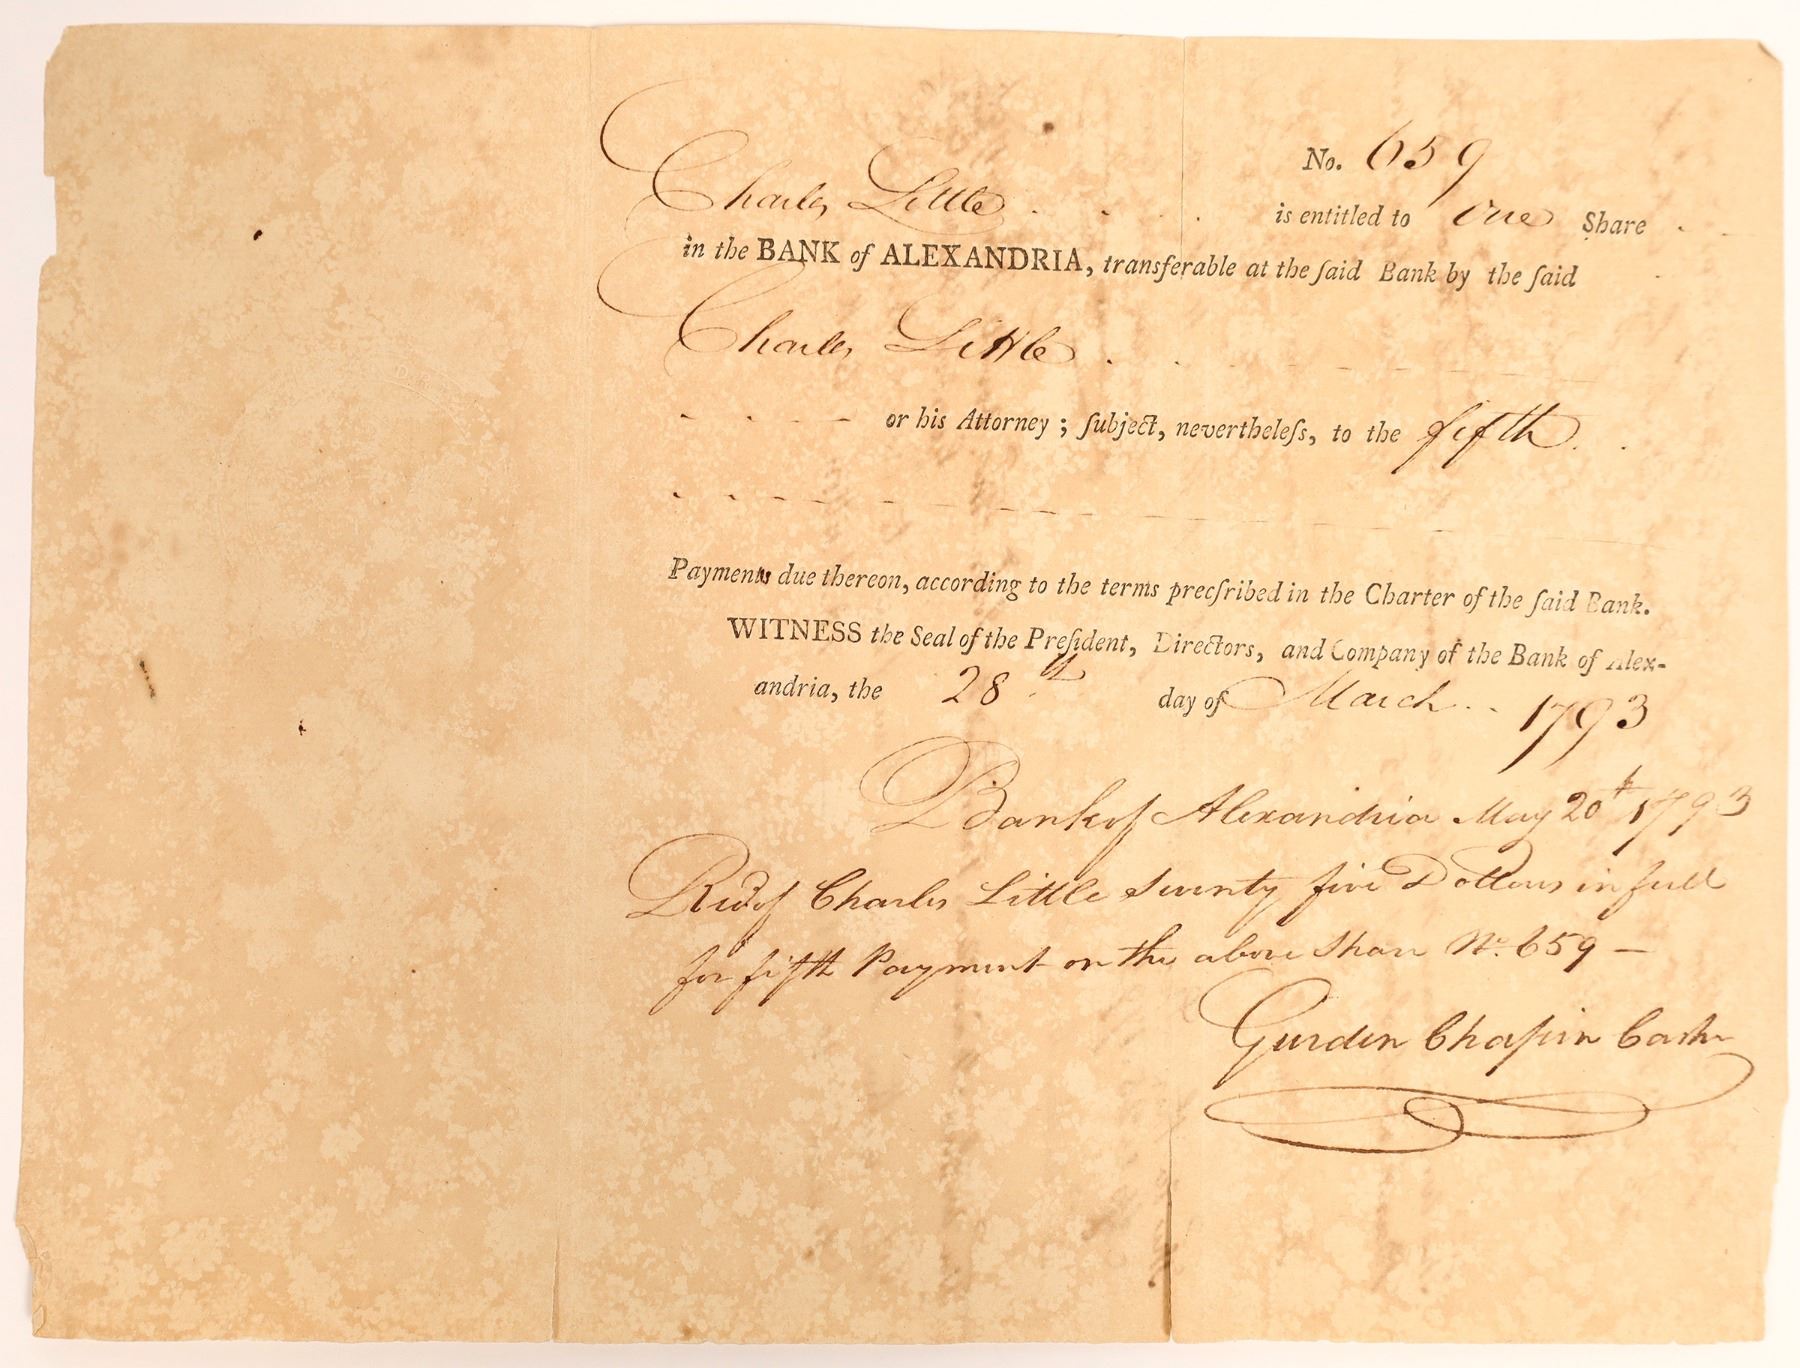 No. 659
Charles Little is entitled to one Share
in the BANK of ALEXANDRIA, transferable at the ſaid Bank by the ſaid
Charles Little
or his Attorney; ſubject, nevertheleſs, to the fifth
Payments due thereon, according to the terms precſribed in the Charter of the ſaid Bank.
WITNESS the Seal of the Preſident, Directors, and Company of the Bank of Alex-
andria, the 28th day of March 1793
Bank of Alexandria May 20th 1793
Recd of Charles Little Seventy five Dollars in full
for fifth Payment on the above Share No. 659 —
Gurden Chapin Cashr